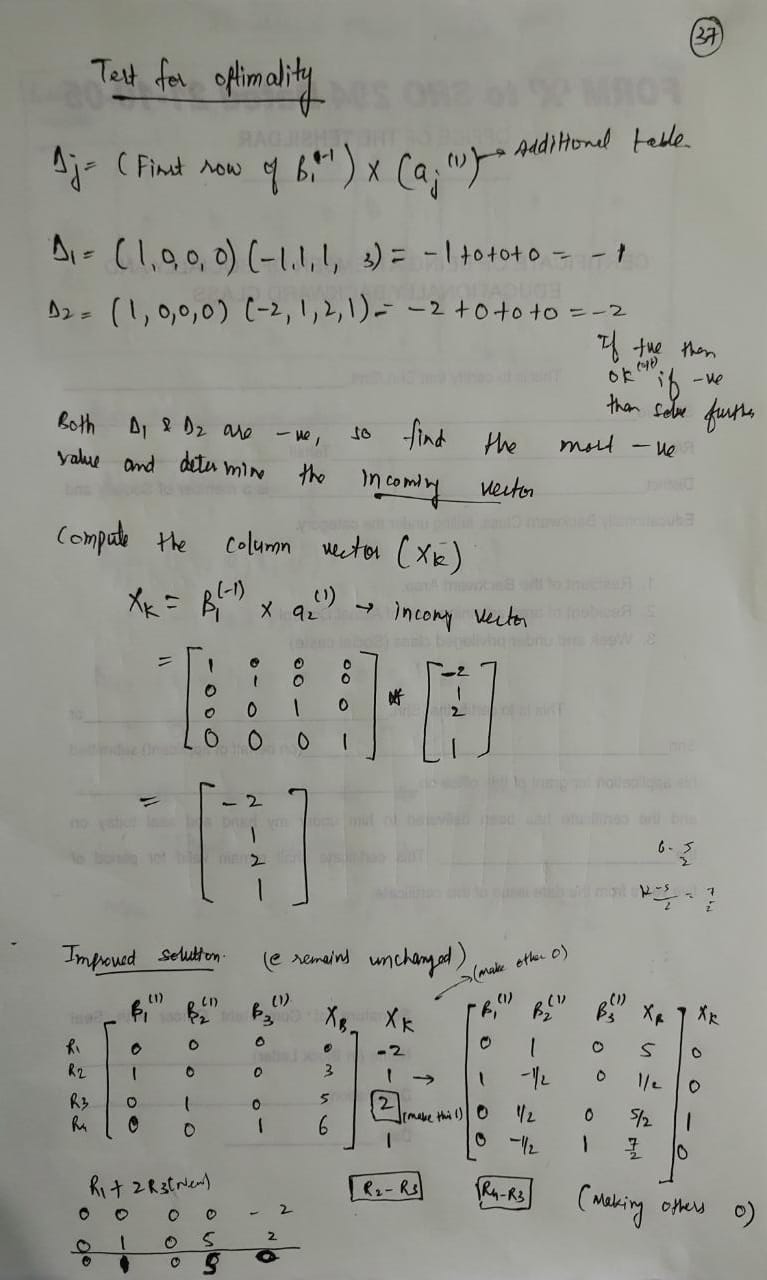 37
Test for optimality
Δj = (First row of B1^-1) × (aj^(1)) → Additional table
Δ1 = (1,0,0,0) (-1,1,1, 3) = -1+0+0+0 = -1
Δ2 = (1,0,0,0) (-2,1,2,1) = -2+0+0+0 = -2
If +ve then
ok (opt) if -ve
then solve further
Both Δ1 & Δ2 are -ve, so find the most -ve
value and determine the incoming vector
Compute the column vector (XK)
XK = B1^(-1) × a2^(1) → incomy vector
= [ 1 0 0 0 ] * [ -2 ]
0 1 0 0 1
0 0 1 0 2
0 0 0 1 1
= [ -2 ]
1
2
1
6 - 5/2
12-5/2 = 7/2
Improved solution. (e remains unchanged) (make other 0)
β1^(1) β2^(1) β3^(1) XB XK → β1^(1) β2^(1) β3^(1) XB XK
R1 0 0 0 0 -2 0 1 0 5 0
R2 1 0 0 3 1 → 1 -1/2 0 1/2 0
R3 0 1 0 5 2 (make this 1) 0 1/2 0 5/2 1
R4 0 0 1 6 1 0 -1/2 1 7/2 0
R1 + 2R3(new) R2-R3 R4-R3 (Making others 0)
0 0 0 0 -2
0 1 0 5 2
0 1 0 5 0